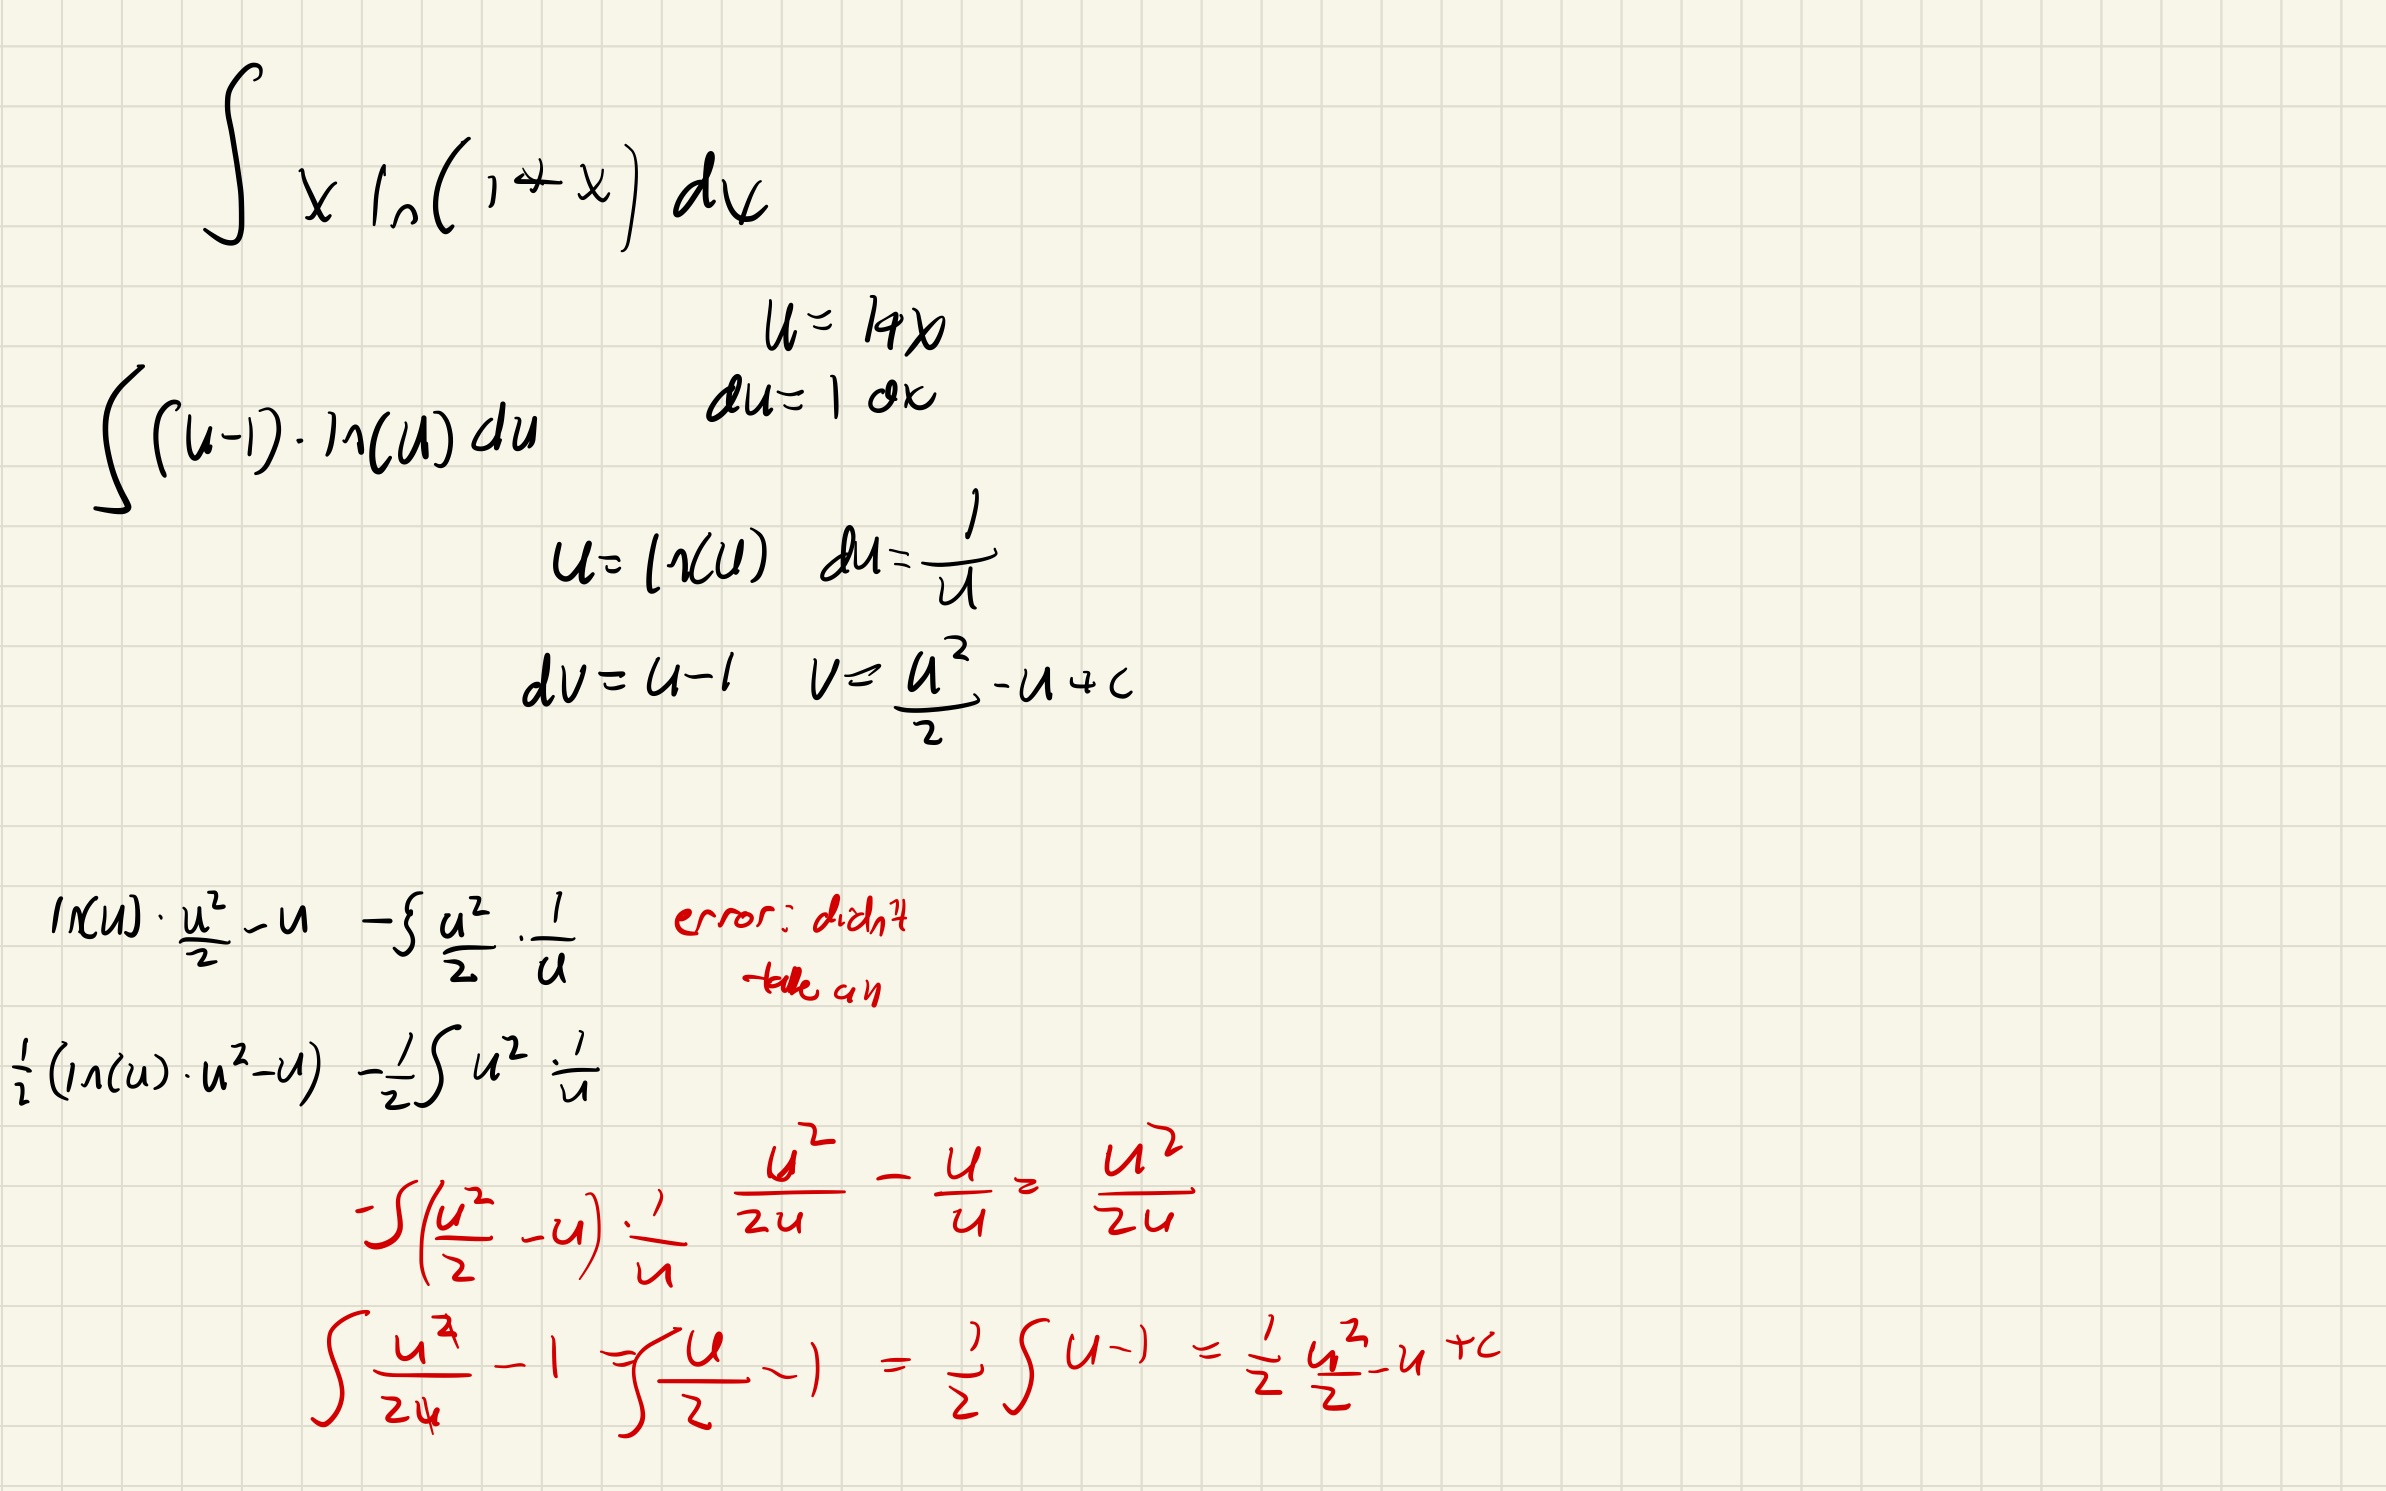 ∫ x ln(1+x) dx
u = 1+x
du = 1 dx
∫ (u-1) · ln(u) du
u = ln(u) du = 1/u
dv = u-1 v = u²/2 - u + c
ln(u) · u²/2 - u - ∫ u²/2 · 1/u error: didn't
take an
1/2 (ln(u) · u² - u) - 1/2 ∫ u² · 1/u
- ∫ (u²/2 - u) · 1/u u²/2u - u/u = u²/2u
∫ u²/2u - 1 = ∫ u/2 - 1) = 1/2 ∫ u-1 = 1/2 u²/2 - u + c